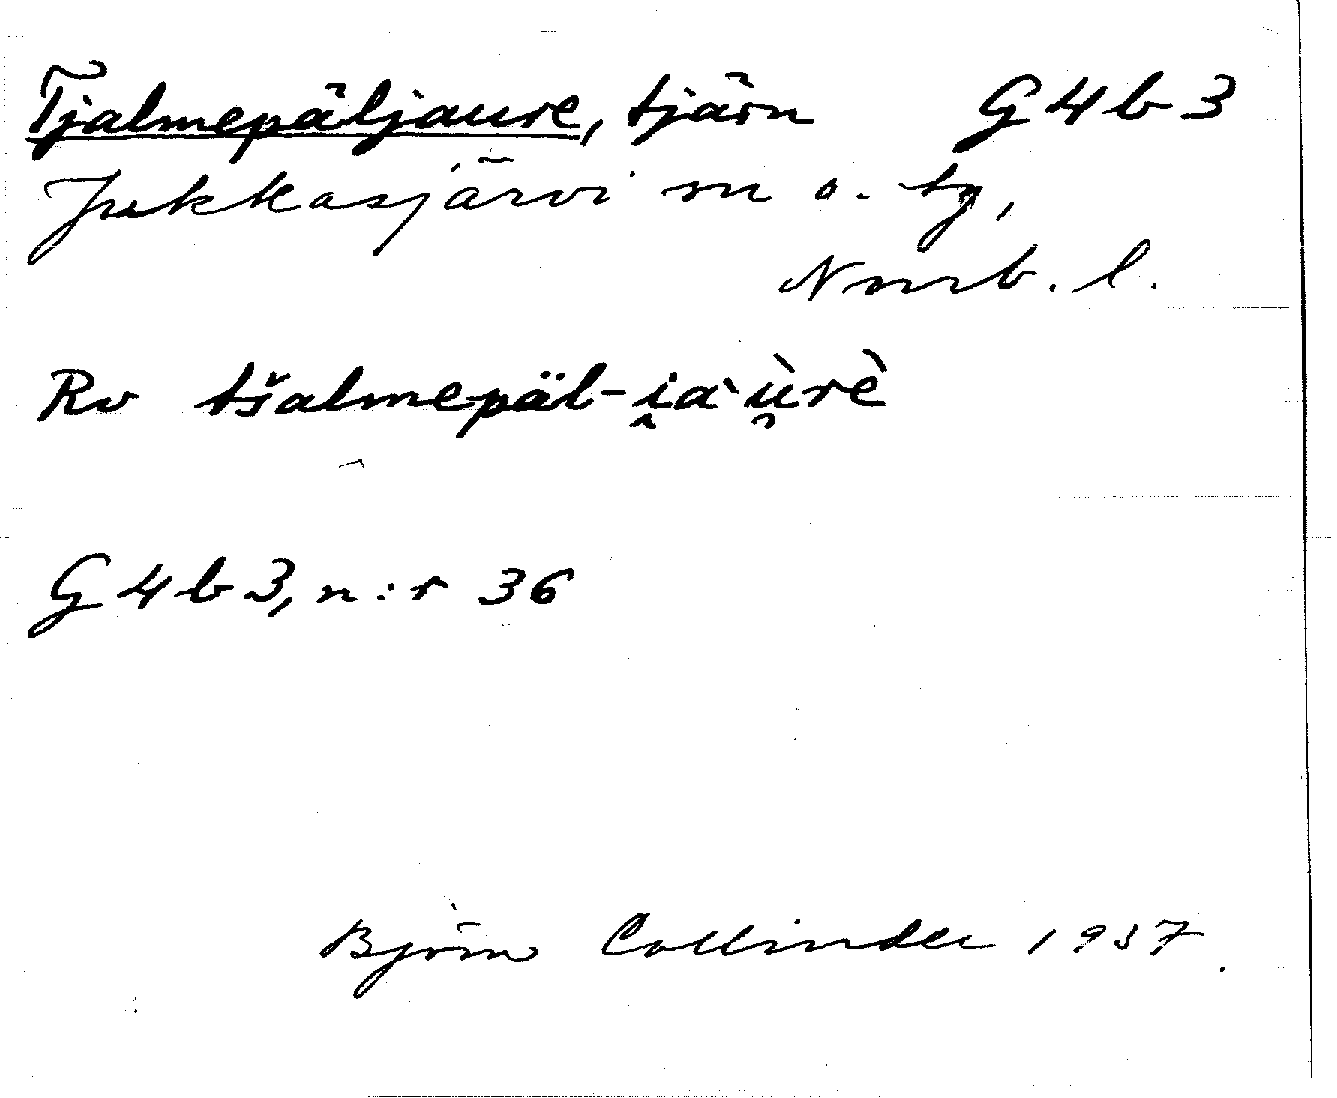 Tjalmepäljaure, tjärn G4b3
Jukkasjärvi sn o. tg,
Nnrb. l.
Rv tšalmepäl-i̯a`u̯̇rè
G4b3, n:r 36
Björn Collinder 1937.